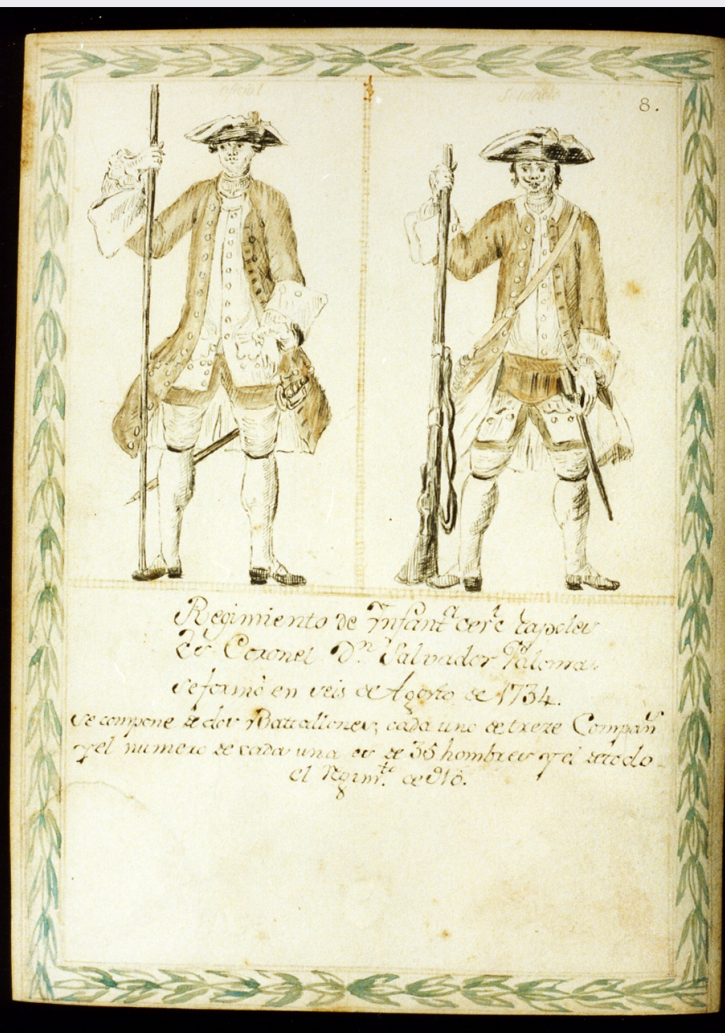 oficial
Soldado
8.
Regimiento de Infant.ª de
Es Coronel D.n Salvador Paloma.
se formó en seis de Agosto de 1734.
se compone de dos Battallones, cada uno de treze Compañ.s
y el numero de cada una es de 35 hombres y el de todo
el Regim.to de 910.
8